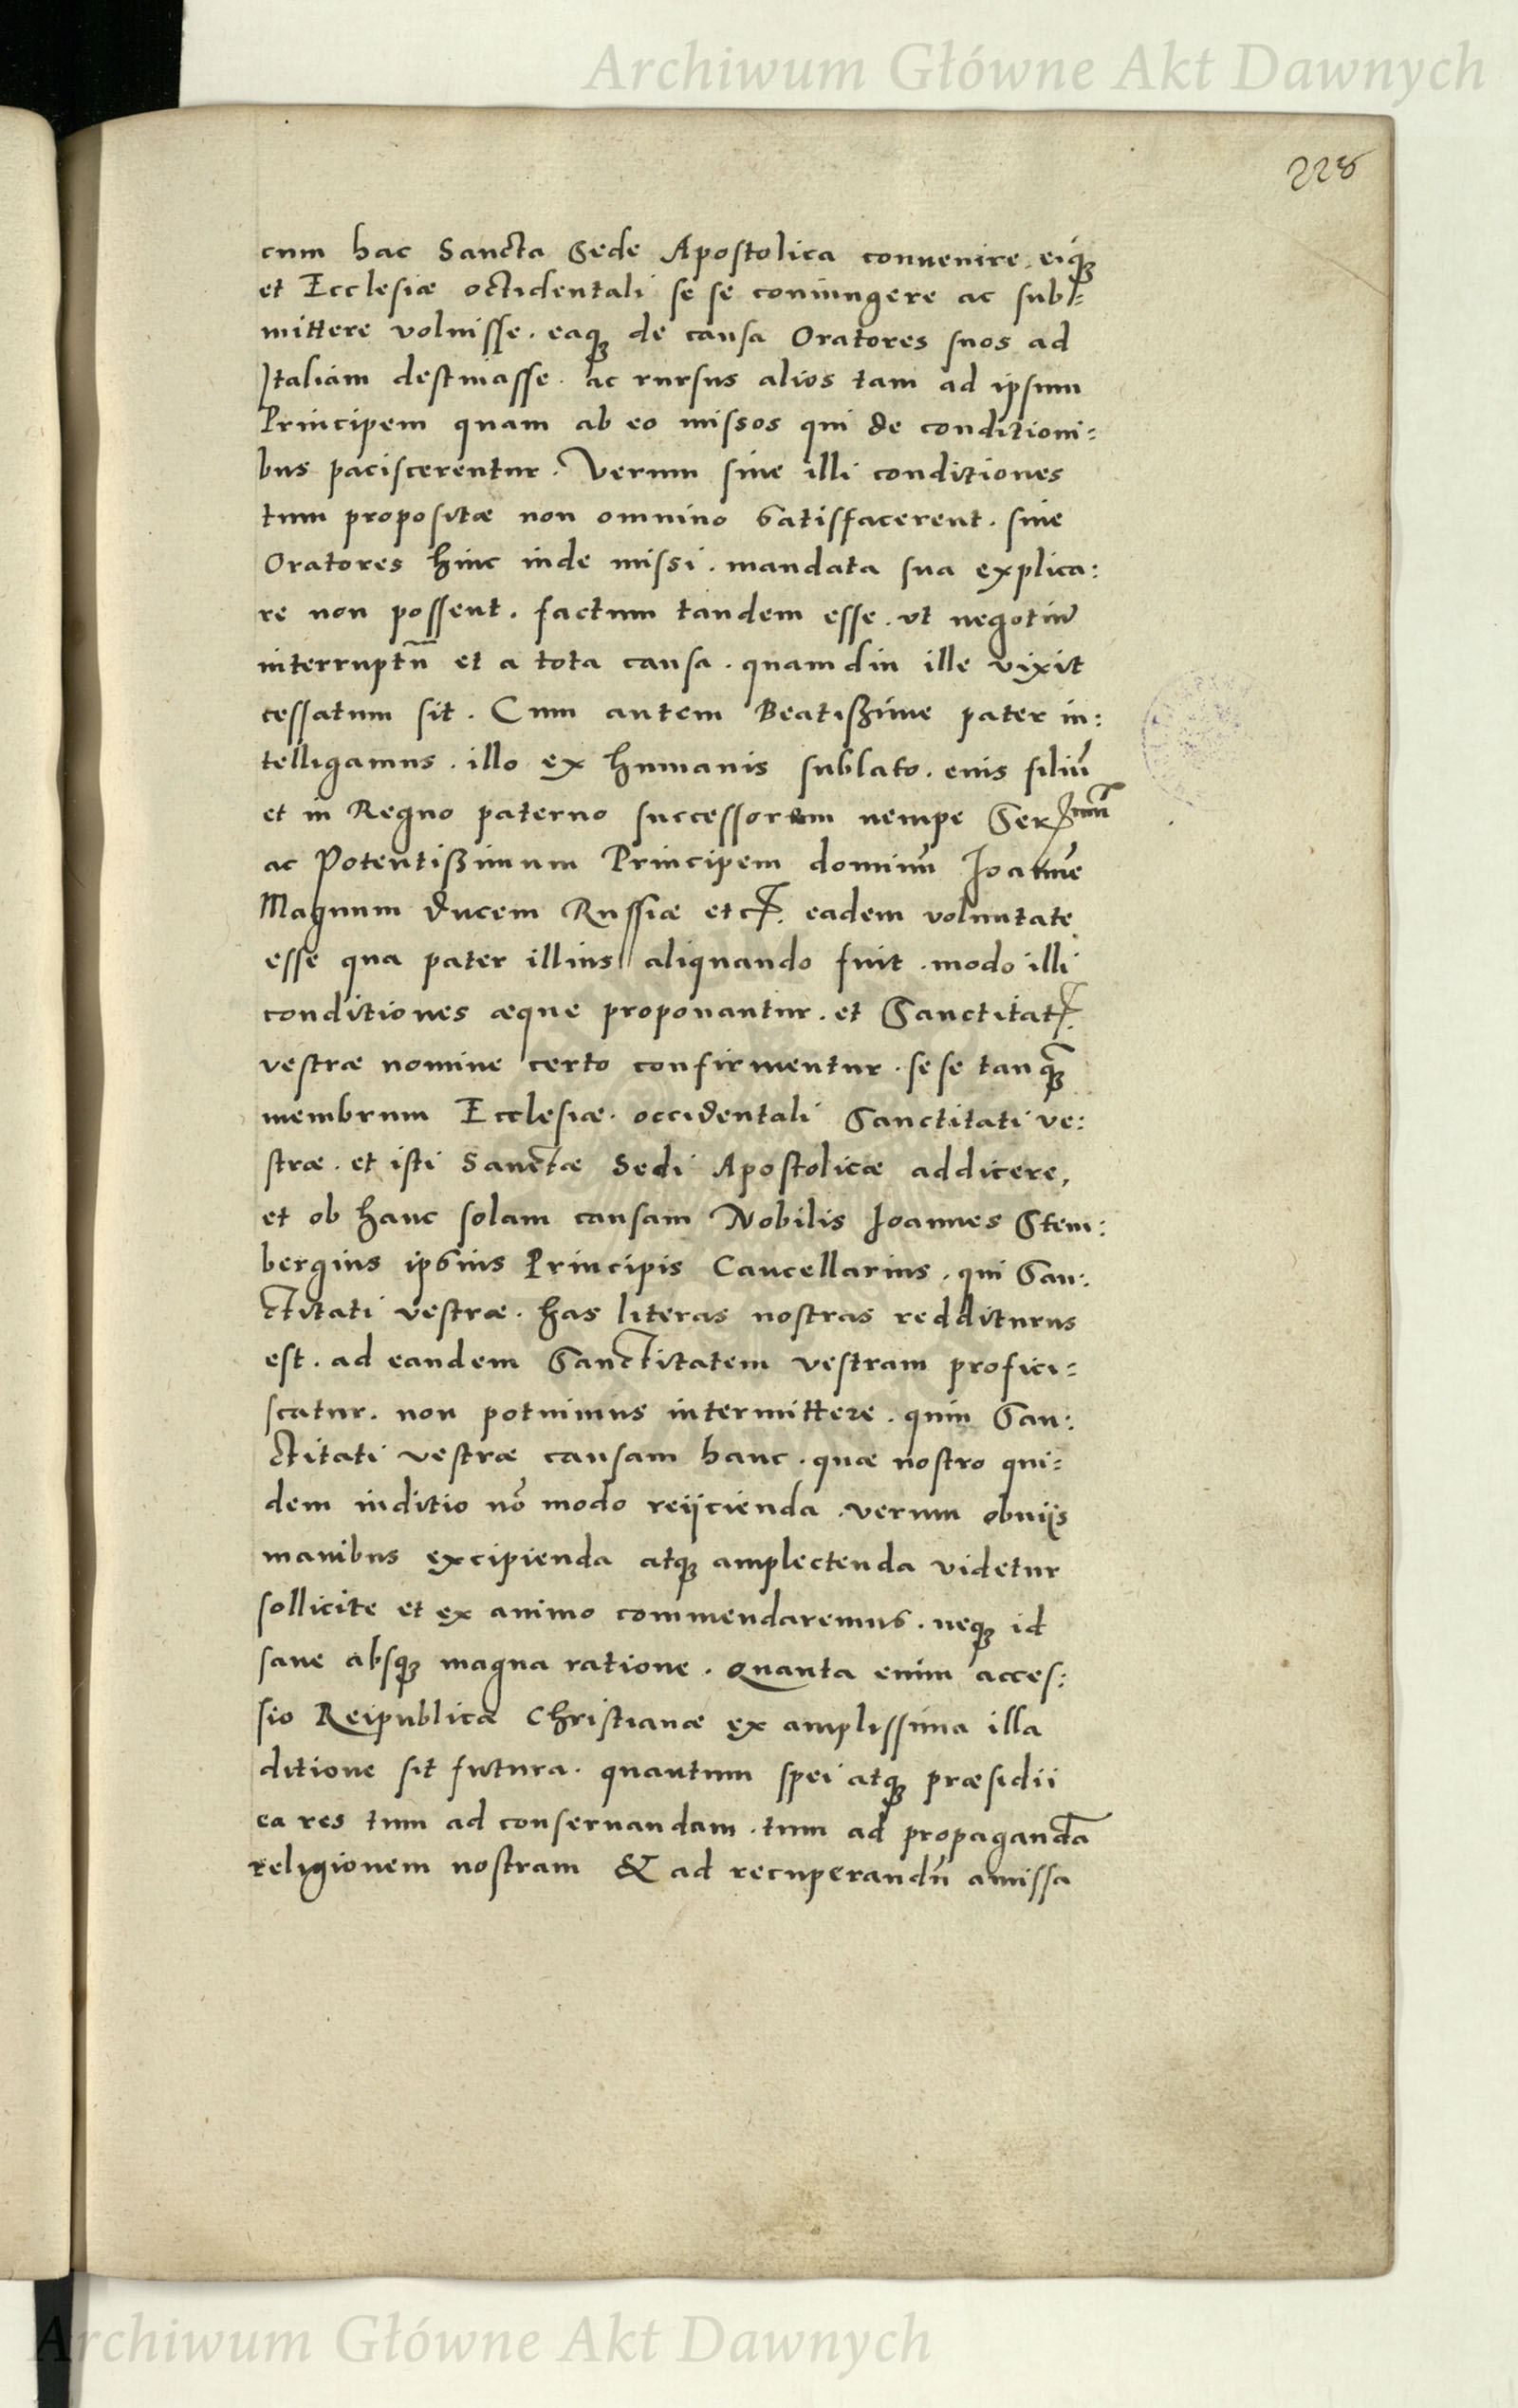 Archiwum Główne Akt Dawnych
228
cum hac Sancta Sede Apostolica conuenire, eiq́ꝫ
et Ecclesiæ octidentali se se coniungere ac sub=
mittere voluisse. eaqꝫ de causa Oratores suos ad
Italiam destinasse. ac rursus alios tam ad ipsum
Principem quam ab eo missos qui de conditioni=
bus paciscerentur. Verum siue illi conditiones
tum propositæ non omnino satisfacerent. siue
Oratores hinc inde missi. mandata sua explica:
re non possent. factum tandem esse. vt negotiũ
interruptũ et a tota causa. quamdiu ille vixit
cessatum sit. Cum autem Beatißime pater in:
telligamus. illo ex humanis sublato. eius filiũ
et in Regno paterno successorem nempe Serᵐᵘ̃
ac Potentißimum Principem dominũ Joannẽ
Magnum Ducem Russiæ etc. eadem voluntate
esse qua pater illius aliquando fuit. modo illi
conditiones æque proponantur. et Sanctitat.
vestræ nomine certo confirmentur. se se tanqꝫ̃
membrum Ecclesiæ. occidentali Sanctitati ve:
stræ. et isti Sanctæ Sedi Apostolicæ addicere,
et ob hanc solam causam Nobilis Joannes Stem:
bergius ipsius Principis Cancellarius. qui San:
ctitati vestræ. has literas nostras redditurus
est. ad eandem Sanctitatem vestram profici=
scatur. non potuimus intermittere. quin San:
ctitati vestræ causam hanc. quæ nostro qui=
dem iuditio nõ modo reijcienda. verum obuijs
manibus excipienda atqꝫ amplectenda videtur
sollicite et ex animo commendaremus. neqꝫ id
sane absqꝫ magna ratione. Quanta enim acces:
sio Reipublicæ Christianæ ex amplissima illa
ditione sit futura. quantum spei atqꝫ præsidii
ea res tum ad conseruandam. tum ad propagandã
religionem nostram & ad recuperandũ amissa
Archiwum Główne Akt Dawnych